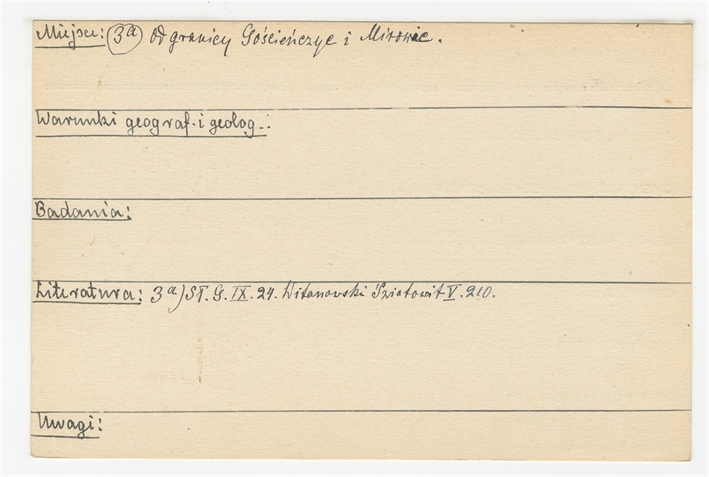 Miejsce: 3a) Od granicy Gościeńczyc i Mirowic.
Warunki geograf. i geolog.:
Badania:
Literatura: 3a) Sł. G. IX. 24. Witanowski Światowit V. 210.
Uwagi: